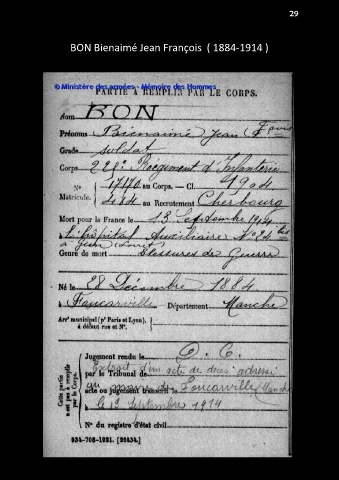 29
BON Bienaimé Jean François ( 1884-1914 )
© Ministère des armées - Mémoire des Hommes
PARTIE À REMPLIR PAR LE CORPS.
Nom BON
Prénoms Bienaimé Jean Fçois
Grade soldat
Corps 225e Régiment d'Infanterie
N° 17170 au Corps. — Cl. 1904
Matricule. 484 au Recrutement Cherbourg
Mort pour la France le 13 Septembre 1914
à l'hôpital Auxiliaire N°
à Gien (Loiret)
Genre de mort Blessures de Guerre
Né le 28 Décembre 1884
à Foucarville Département Manche
Arrt municipal (pr Paris et Lyon),
à défaut rue et N°.
Cette partie
n'est pas à remplir
par le Corps.
Jugement rendu le D. C.
par le Tribunal de Extrait d'un acte de décès adressé
acte ou jugement transcrit le au maire de Foucarville (Manche
à le 19 Septembre 1914
N° du registre d'état civil
534-708-1921. [26434.]